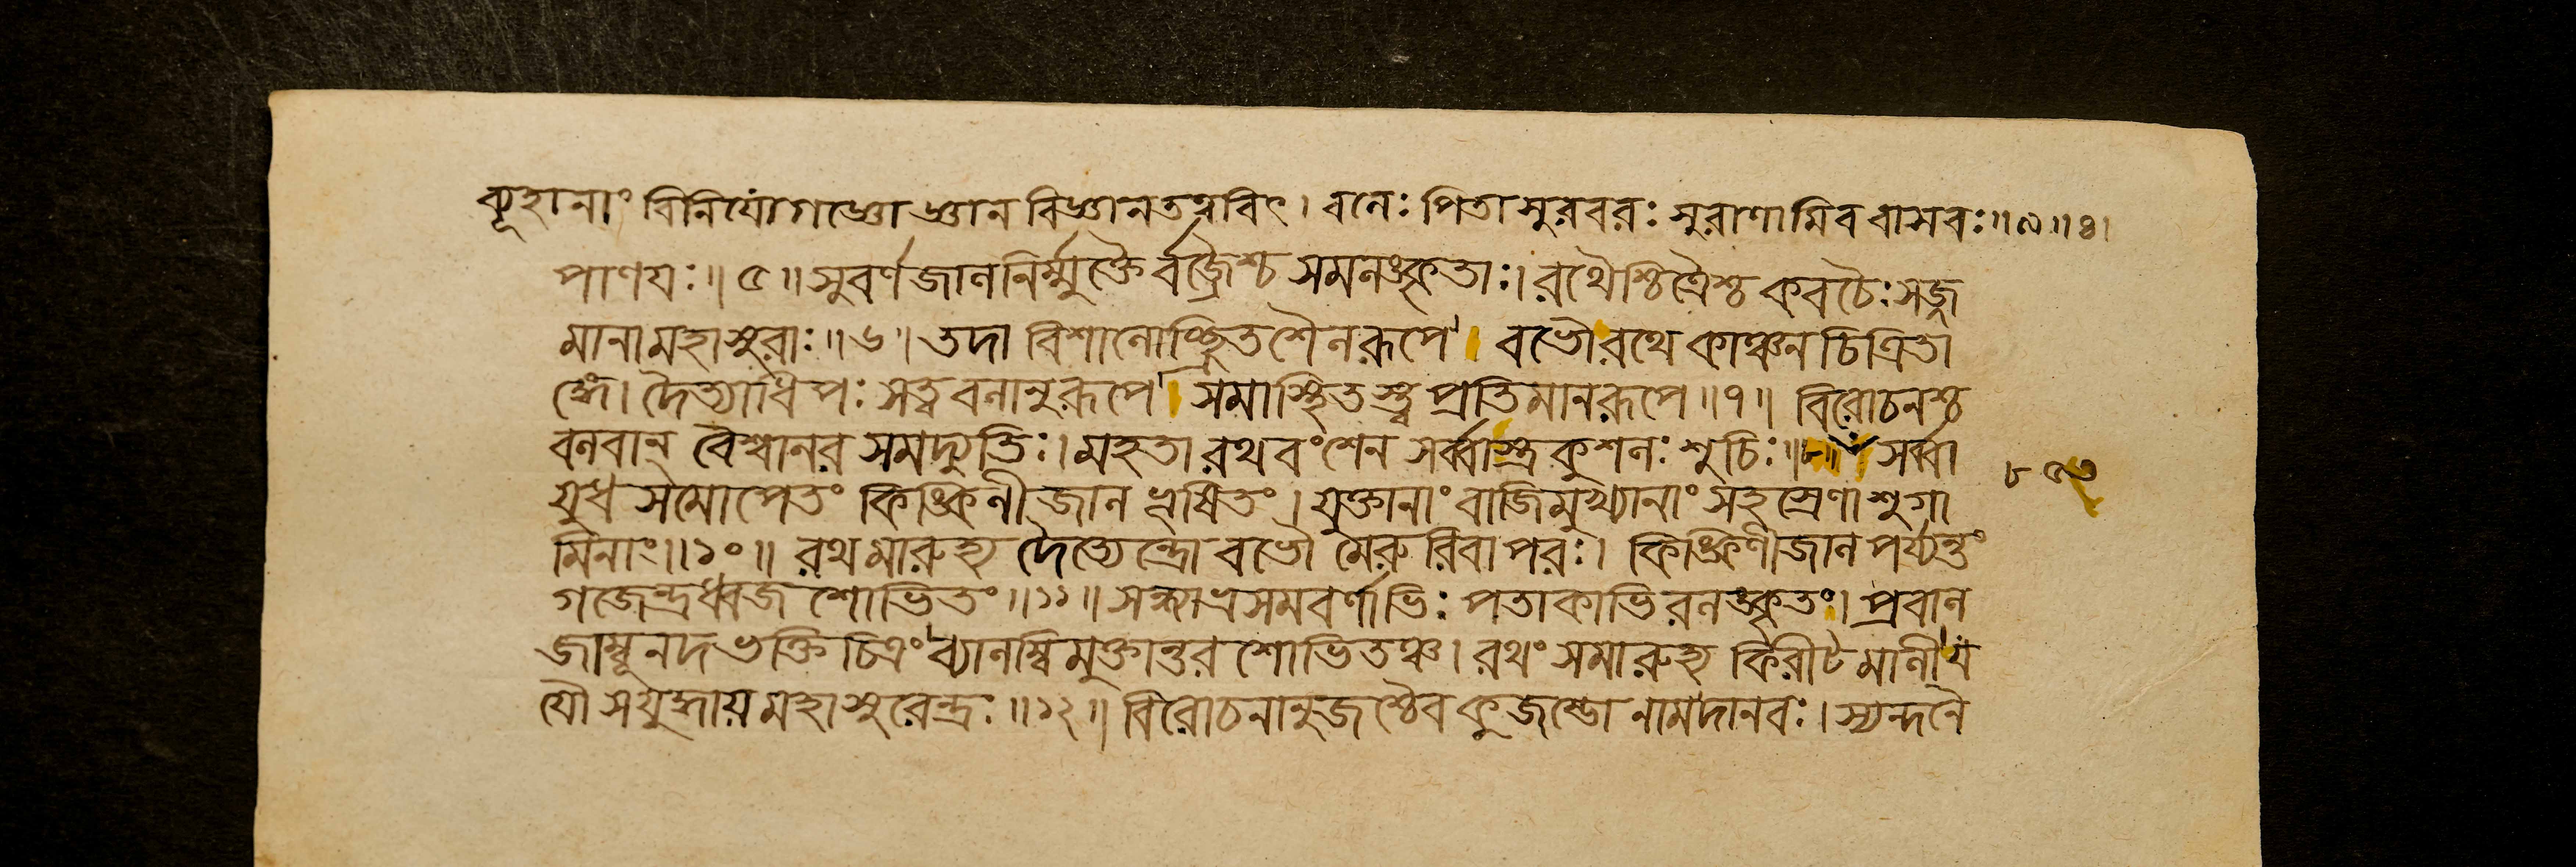 ব্যূহানাং বিনিযোগজ্ঞো জ্ঞানবিজ্ঞানতত্ত্ববিৎ। বলেঃ পিতাসুরবরঃ সুরাণামিববাসবঃ॥৯॥৪।
পাণযঃ॥৫॥সুবর্ণজালনির্ম্মুক্তৈর্বজ্রৈশ্চসমলঙ্কৃতাঃ।রথৈশ্চিত্রৈশ্চকবচৈঃসজ্জ
মানামহাসুরাঃ॥৬।তদা বিশালোচ্ছ্রিতশৈলরূপে। বভৌরথে কাঞ্চনচিত্রিতা
ঙ্গে।দৈত্যাধিপঃ সত্ত্ববলানুরূপে।সমাস্থিতস্ত্বপ্রতিমানরূপে॥৭॥ বিরোচনশ্চ
বলবান্ বৈশ্বানর সমদ্যুতিঃ।মহতা রথবংশেন সর্ব্বাস্ত্রকুশলঃ শুচিঃ॥৮॥ সর্ব্বা
যুধ সমোপেতং কিঙ্কিণীজাল ভূষিতং।যুক্তানাং বাজিমুখ্যানাং সহস্রেণাশুগা
মিনাং॥১০॥ রথমারুহ্য দৈত্যেন্দ্রো বভৌ মেরুরিবাপরঃ। কিঙ্কিণীজালপর্য্যন্তং
গজেন্দ্রধ্বজ শোভিতং॥১১॥সন্ধ্যাভ্রসমবর্ণাভিঃ পতাকাভিরলঙ্কৃতং।প্রবাল
জাম্বূনদভক্তিচিত্রং ব্যালম্বিমুক্তান্তরশোভিতঞ্চ।রথং সমারুহ্য কিরীটমালী য
যৌ সযুদ্ধায়মহাসুরেন্দ্রঃ॥১২॥বিরোচনানুজশ্চৈব কুজম্ভো নামদানবঃ।স্যন্দনৈ
৮৫৩